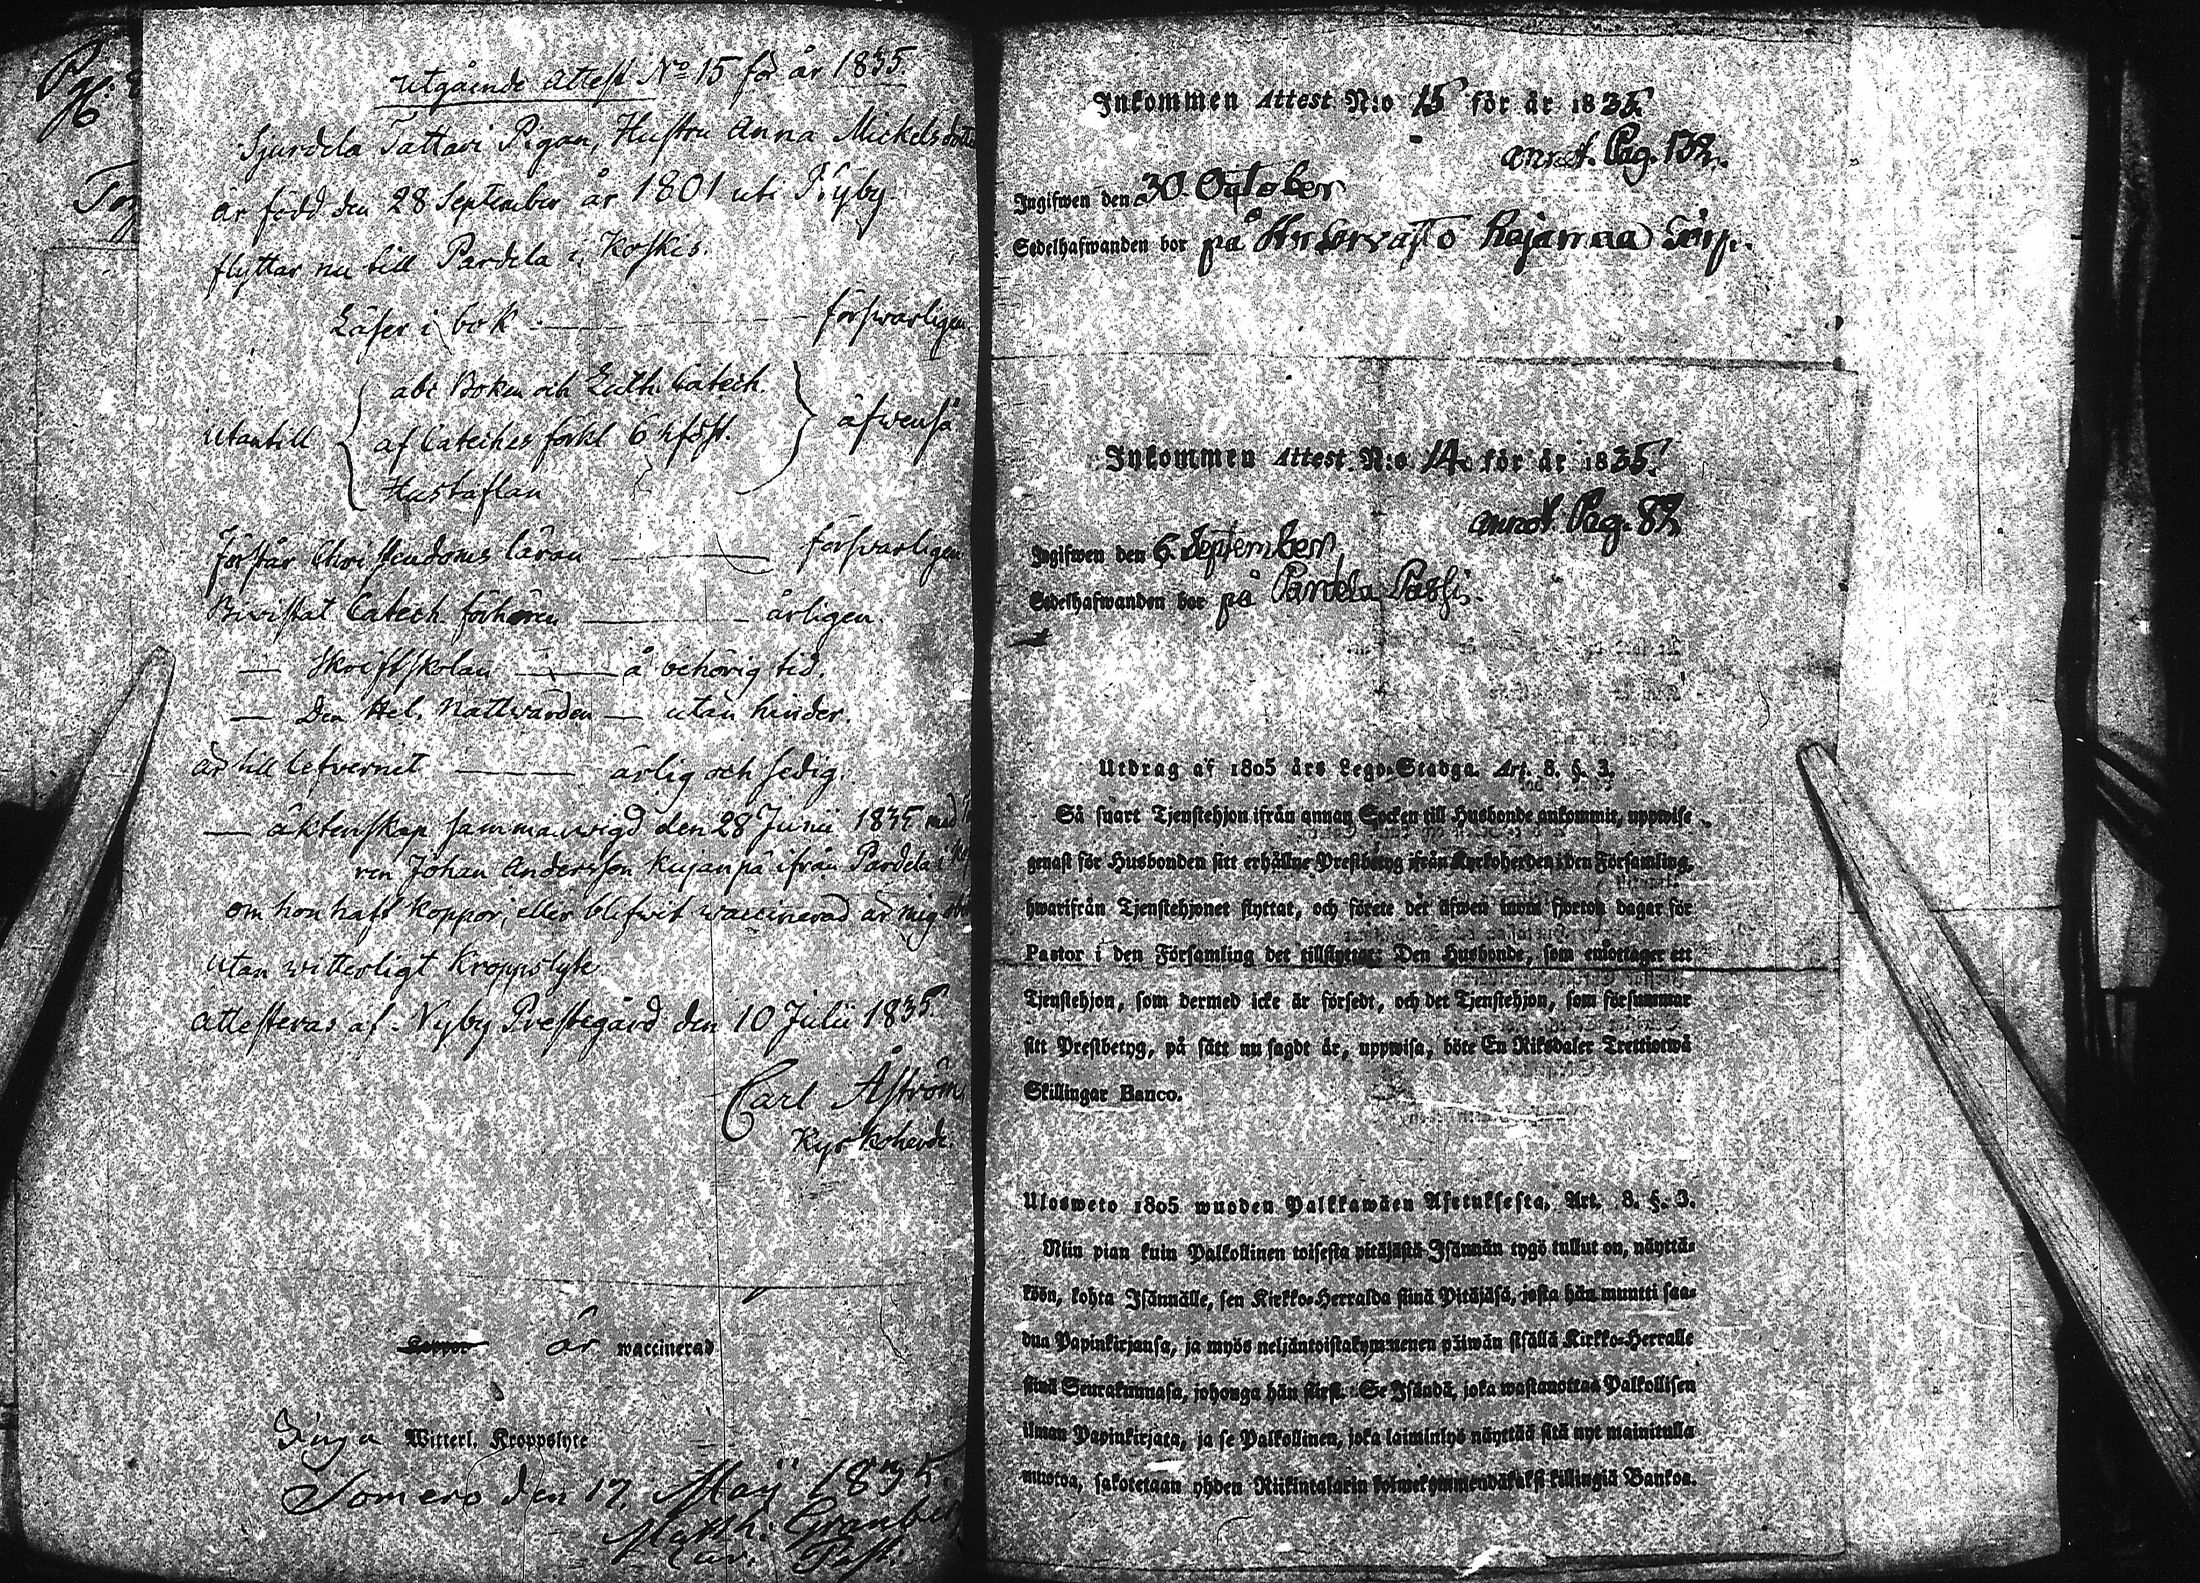 Utgående Attest No 15 för år 1835.
Sjurdela Tattari Pigan, Hustru Anna Mickelsdotter
är född den 28 September år 1801 uti Vyby
flyttar nu till Pardela i Koskis.
Läser i bok — förswarligen
abc Boken och Luth. Catech.
Utantill af Cateches förkl 6 hfdst. äfwenså
Hustaflan
Förstår Christendoms läran — förswarligen
Bivistat Catech. förhören — årligen.
— Skriftskolan — å behörig tid.
— Den Hel. Nattvarden — utan hinder.
är till lefvernet — ärlig och sedig.
— äktenskap sammanwigd den 28 Junii 1835 med
ren Johan Andersson Kujanpä ifrån Pardela i
om hon haft koppor, eller blifwit waccinerad är mig
utan witterligt Kroppslyte.
Attesteras af Vyby Prestegård den 10 Julii 1835
Carl Åström
Kyrkoherde.
Koppor är waccinerad
Inga Witterl. Kroppslyte
Somero den 17. Maij 1835.
Matth: Granber
Past:
Inkommen Attest N:o 15 för år 1835.
annot. Pag. 132.
Ingifwen den 30. October
Sedelhafwanden bor på Rajamaa Torp.
Inkommen Attest N:o 14. för år 1835.
annot. Pag. 87.
Ingifwen den 6. September
Sedelhafwanden bor på Pardela Passi.
Utdrag af 1805 års Lego-Stadga. Art. 8. §. 3.
Så snart Tjenstehjon ifrån annan Socken till Husbonde ankommit, uppwise
genast för Husbonden sitt erhållne Prestbetyg ifrån Kyrkoherden i den Församling,
hwarifrån Tjenstehjonet flyttat, och förete det äfwen inom fjorton dagar för
Pastor i den Församling det tillflyttat; Den Husbonde, som emottager ett
Tjenstehjon, som dermed icke är försedt, och det Tjenstehjon, som försummar
sitt Prestbetyg, på sätt nu sagdt är, uppwisa, böte En Riksdaler Trettiotwå
Skillingar Banco.
Ulosweto 1805 wuoden Palkkawäen Asetuksesta, Art. 8. §. 3.
Niin pian kuin Palkollinen toisesta pitäjästä Isännän tygö tullut on, näyttä-
köön, kohta Isännälle, sen Kirkko-Herralda siinä Pitäjäsä, josta hän muutti saa-
dua Papinkirjansa, ja myös neljäntoistakymmenen päiwän sisällä Kirkko-Herralle
siinä Seurakunnasa, johonga hän siirsi. Se Isändä, joka wastanottaa Palkollisen
ilman Papinkirjata, ja se Palkollinen, joka laiminlyö näyttää sitä nyt mainitulla
muotoa, sakotetaan yhden Riikintalarin kolmekymmendäkaksi killingiä Bankoa.